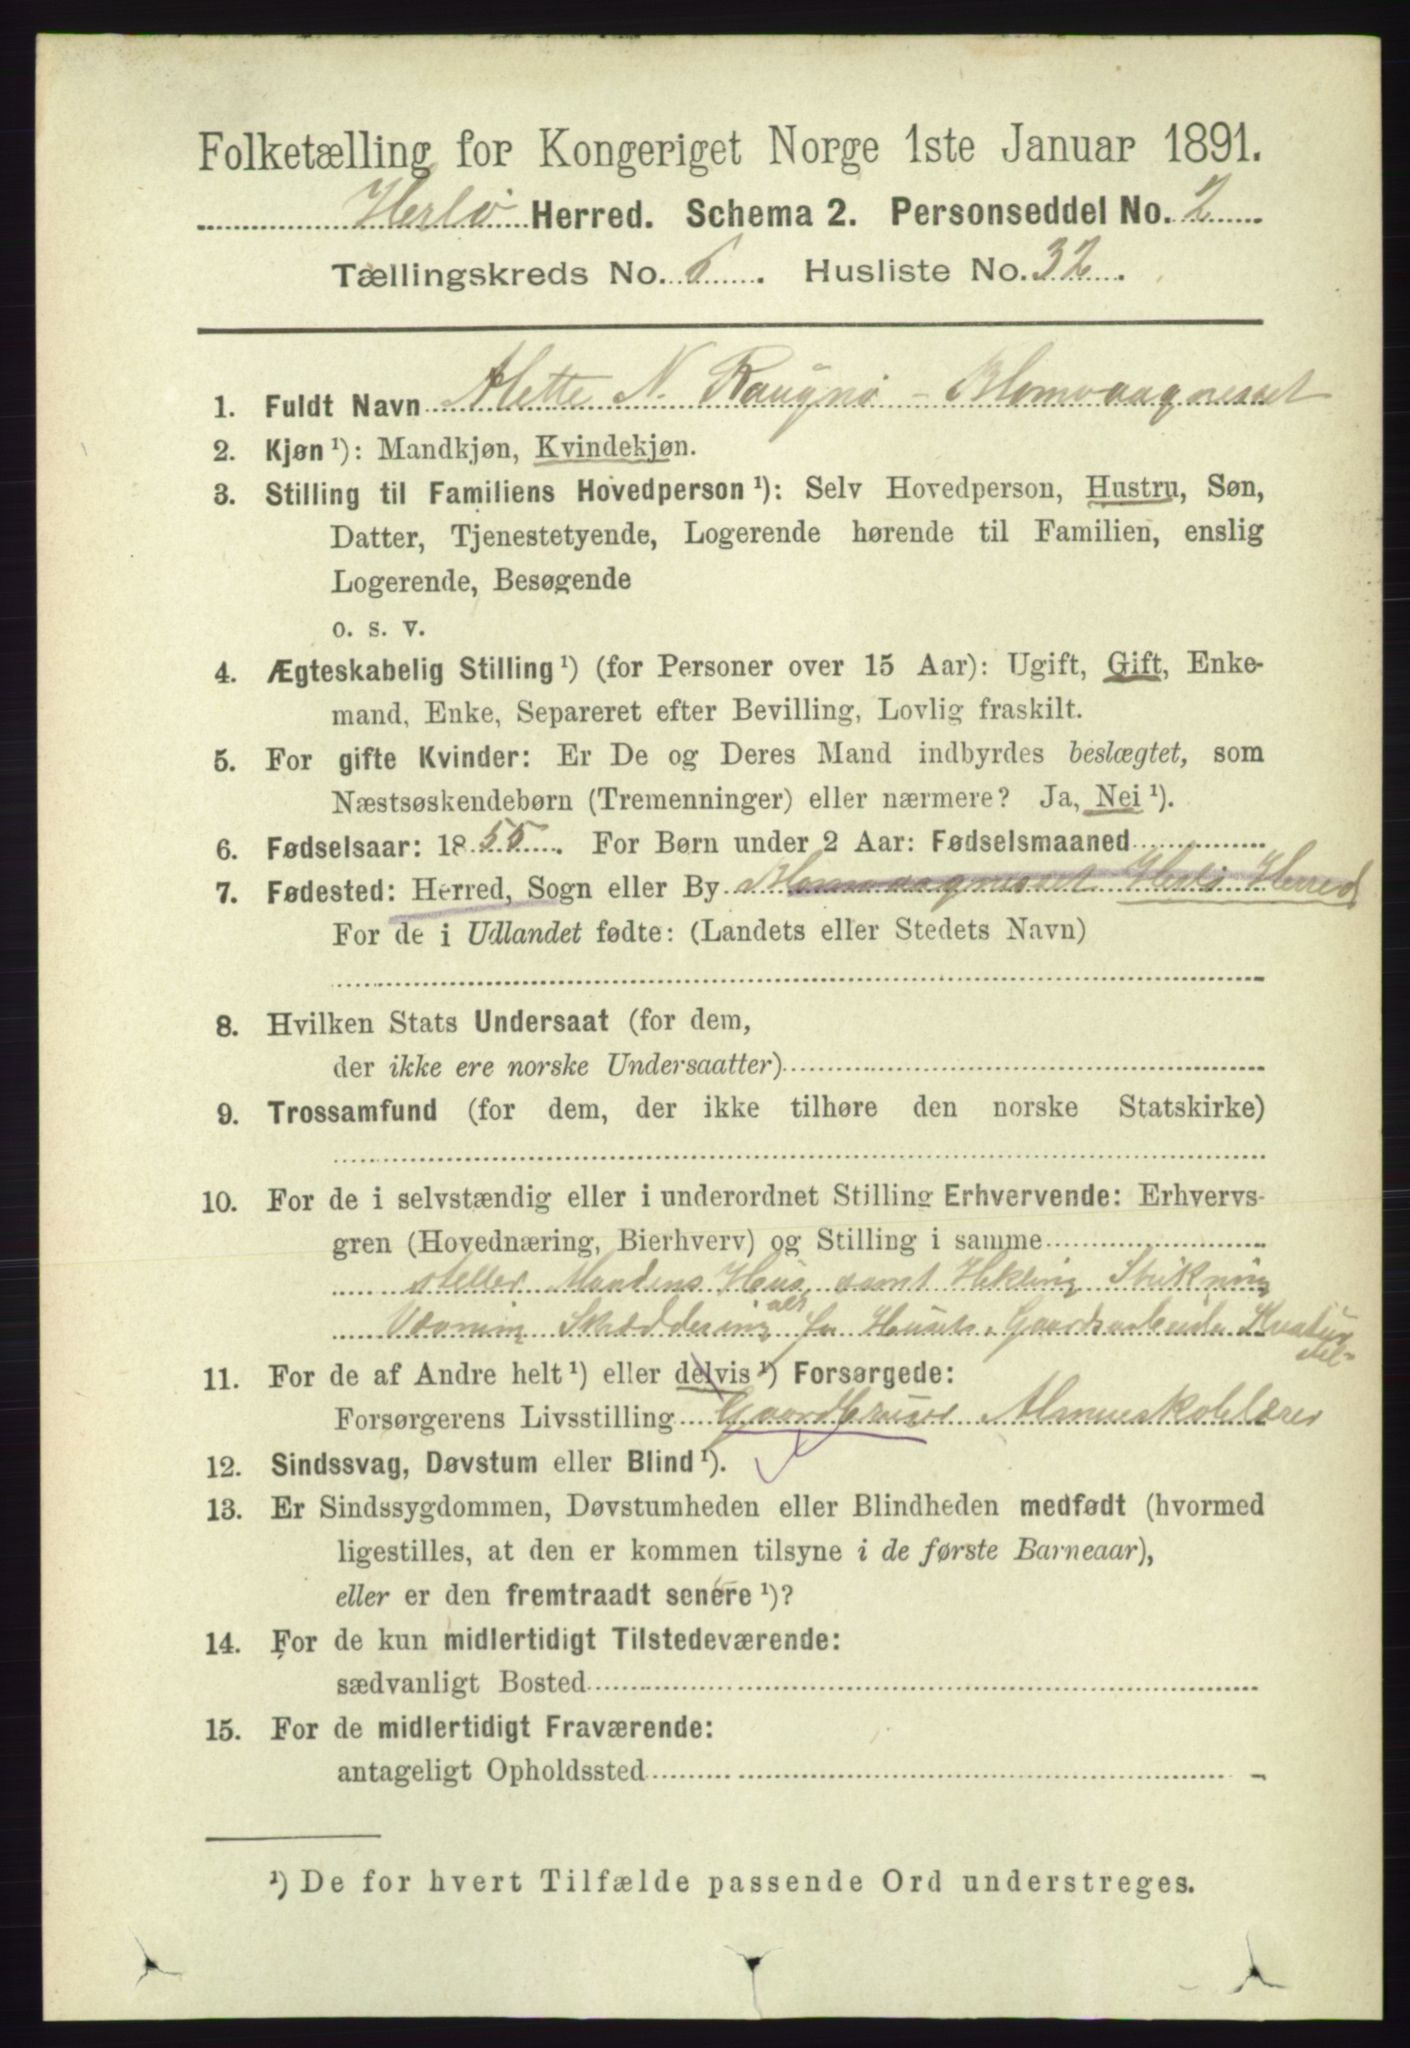 Folketælling for Kongeriget Norge 1ste Januar 1891.
Herlø Herred. Schema 2. Personseddel No. 2
Tællingskreds No. 6. Husliste No. 32.
1. Fuldt Navn Alette N. Raugnø - Blomvaagnesset
2. Kjøn ¹): Mandkjøn, Kvindekjøn.
3. Stilling til Familiens Hovedperson ¹): Selv Hovedperson, Hustru, Søn,
Datter, Tjenestetyende, Logerende hørende til Familien, enslig
Logerende, Besøgende
o. s. v.
4. Ægteskabelig Stilling ¹) (for Personer over 15 Aar): Ugift, Gift, Enke-
mand, Enke, Separeret efter Bevilling, Lovlig fraskilt.
5. For gifte Kvinder: Er De og Deres Mand indbyrdes beslægtet, som
Næstsøskendebørn (Tremenninger) eller nærmere? Ja, Nei ¹).
6. Fødselsaar: 1855. For Børn under 2 Aar: Fødselsmaaned
7. Fødested: Herred, Sogn eller By Blomvaagnesset Herlø Herred
For de i Udlandet fødte: (Landets eller Stedets Navn)
8. Hvilken Stats Undersaat (for dem,
der ikke ere norske Undersaatter)
9. Trossamfund (for dem, der ikke tilhøre den norske Statskirke)
10. For de i selvstændig eller i underordnet Stilling Erhvervende: Erhvervs-
gren (Hovednæring, Bierhverv) og Stilling i samme
steller Mandens Hus, samt Hekling Strikning
Vævning Skræddering for Huset, Gaardsarbeide Kreatur
stel
11. For de af Andre helt ¹) eller delvis ¹) Forsørgede:
Forsørgerens Livsstilling Gaardbruger Almueskolelærer
12. Sindssvag, Døvstum eller Blind ¹).
13. Er Sindssygdommen, Døvstumheden eller Blindheden medfødt (hvormed
ligestilles, at den er kommen tilsyne i de første Barneaar),
eller er den fremtraadt senere ¹)?
14. For de kun midlertidigt Tilstedeværende:
sædvanligt Bosted
15. For de midlertidigt Fraværende:
antageligt Opholdssted
¹) De for hvert Tilfælde passende Ord understreges.